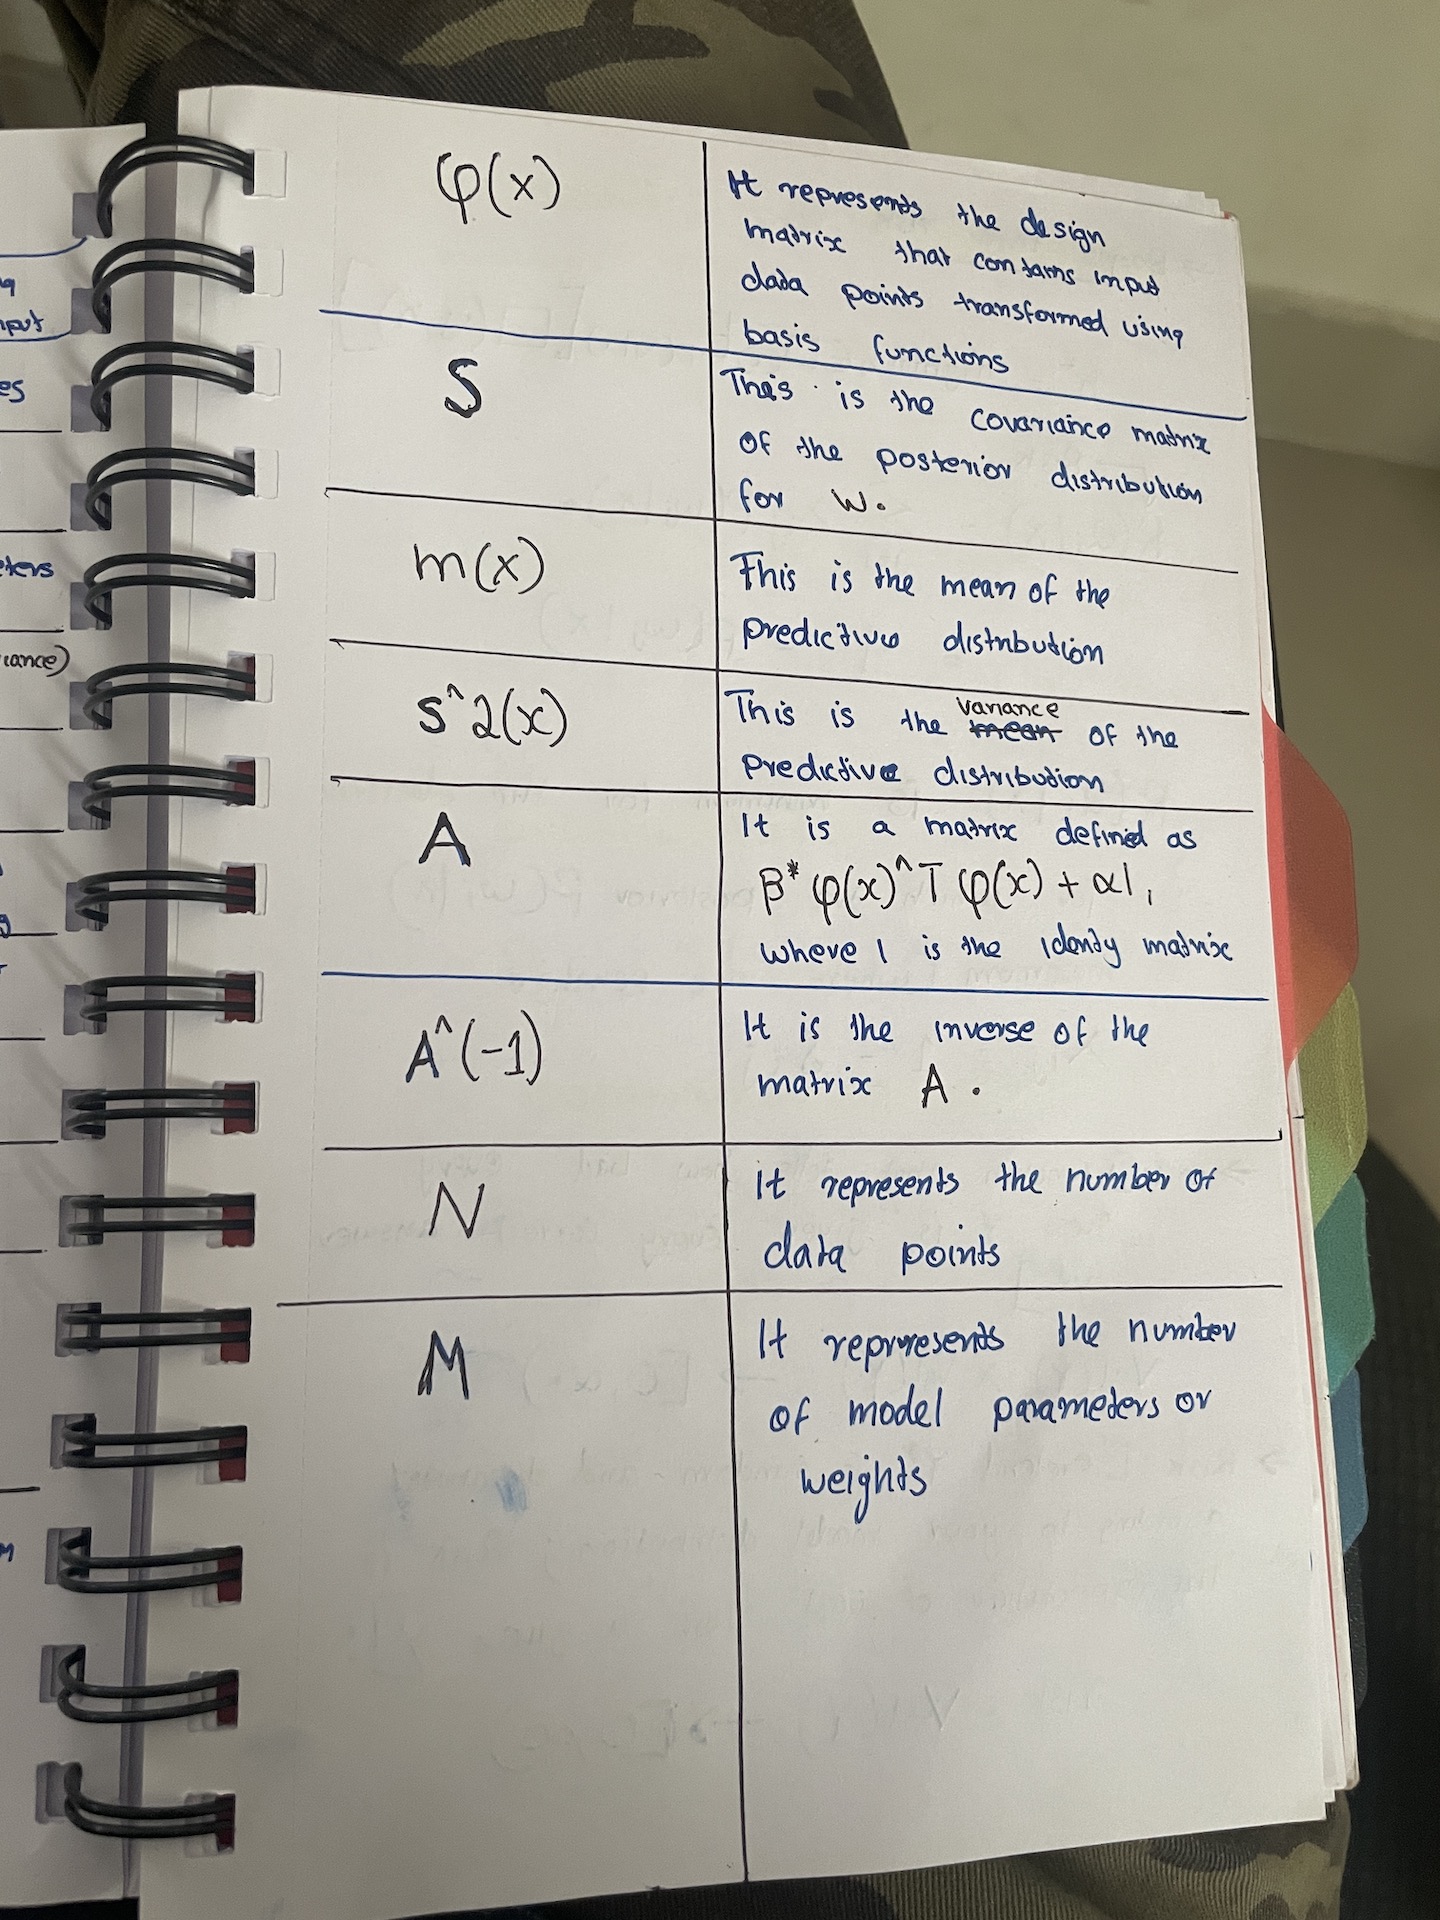 φ(x)
It represents the design
matrix that contains input
data points transformed using
basis functions
S
This is the covariance matrix
of the posterior distribution
for w.
m(x)
This is the mean of the
predictive distribution
s^2(x)
variance
This is the mean of the
predictive distribution
A
It is a matrix defined as
β* φ(x)^T φ(x) + αI,
where I is the idendy matrix
A^(-1)
It is the inverse of the
matrix A.
N
it represents the number of
data points
M
It reprresents the number
of model parameters or
weights